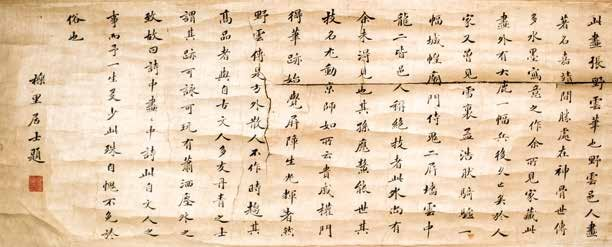 此畫張野雲筆也野雲邑人畫
著名嘉道間勝處在神骨世傳
多水墨寫意之作余所見家藏此
畫外有大鹿一幅兵後久已失於人
家又曾見雲裏孟浩狀騎驢一
幅城隍廟門侍鬼二屏墻雲中
龍二皆邑人稱絕技者此外尚有
余未得見也其孫應鰲能世其
技名尤動京師如所云貴戚權門
得筆跡始覺屏障生光輝者然
野雲傳是方外散人不作時趨其
高品者與自古文人多友丹青之士
謂其跡可詠可玩有蕭洒塵外之
致故曰詩中畫畫中詩此自文人之
事而予一生更少此殊自愧不免於
俗也
里居士題